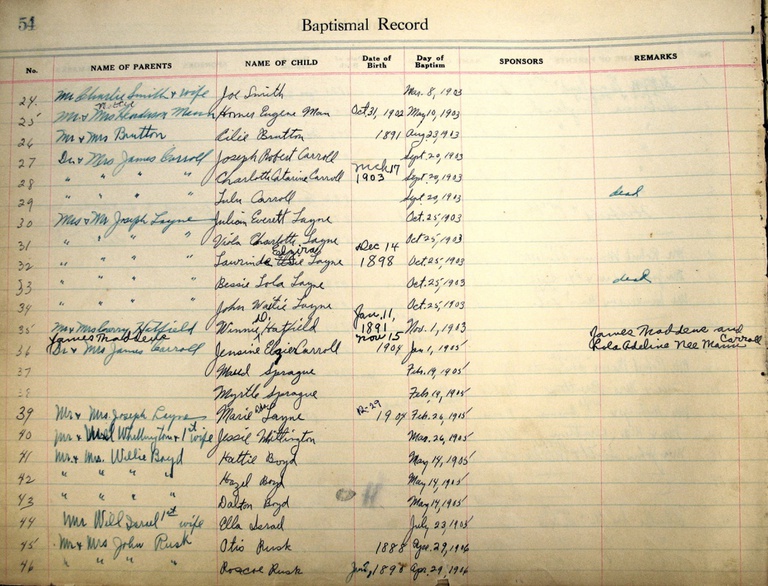 54
Baptismal Record
No. NAME OF PARENTS NAME OF CHILD Date of Birth Day of Baptism SPONSORS REMARKS
24. Mr Charlie Smith & wife Joe Smith Mar. 8, 1903
25 Mr & Mrs Homer Eugene Oct 31, 1902 May 10, 1903
26 Mr & Mrs Brutton Cilie Brutton 1891 Aug 23, 1903
27 Dr & Mrs James Carroll Joseph Robert Carroll Sept. 20, 1903
28 " " " " Charlotte Catarine Carroll Mch 17 1903 Sept. 20, 1903
29 " " " " Lulu Carroll Sept. 20, 1903 dead
30 Mrs & Mr Joseph Layne Julian Everett Layne Oct. 25, 1903
31 " " " " Viola Charlotte Layne Oct 25, 1903
32 " " " " Elvira Layne Dec 14 1898 Oct. 25, 1903
33 " " " " Bessie Lola Layne Oct. 25, 1903 dead
34 " " " " John Layne Oct. 25, 1903
35 Mr & Mrs Hatfield Winnie D. Hatfield Jan. 11, 1891 Nov. 1, 1903
James Maddens James Maddens and
36 Dr & Mrs James Carroll Jensine Carroll Nov 15 1904 Jan 1, 1905 Lola Adeline Nee Mann Carroll
37 Sprague Feb. 19, 1905
38 Myrtle Sprague Feb 19, 1905
39 Mr & Mrs. Joseph Layne Marie Layne Dec 29 1904 Feb. 26, 1905
40 Mr & Whittington & 1st wife Jessie Whittington Mar. 26, 1905
41 Mr & Mrs. Willie Boyd Hattie Boyd May 14, 1905
42 " " " " Hazel Boyd May 14, 1905
43 " " " " Dalton Boyd May 14, 1905
44 Mr Will Israel 1st wife Ella Israel July 23, 1905
45 Mr & Mrs John Rusk Otis Rusk 1888 Apr. 29, 1906
46 " " " " Roscoe Rusk 1898 Apr. 29, 1906